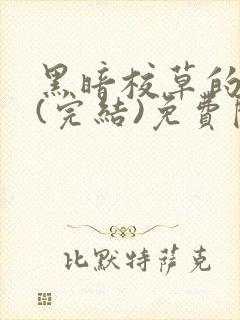 黑暗校草的
(完結)免費
比默特萨克